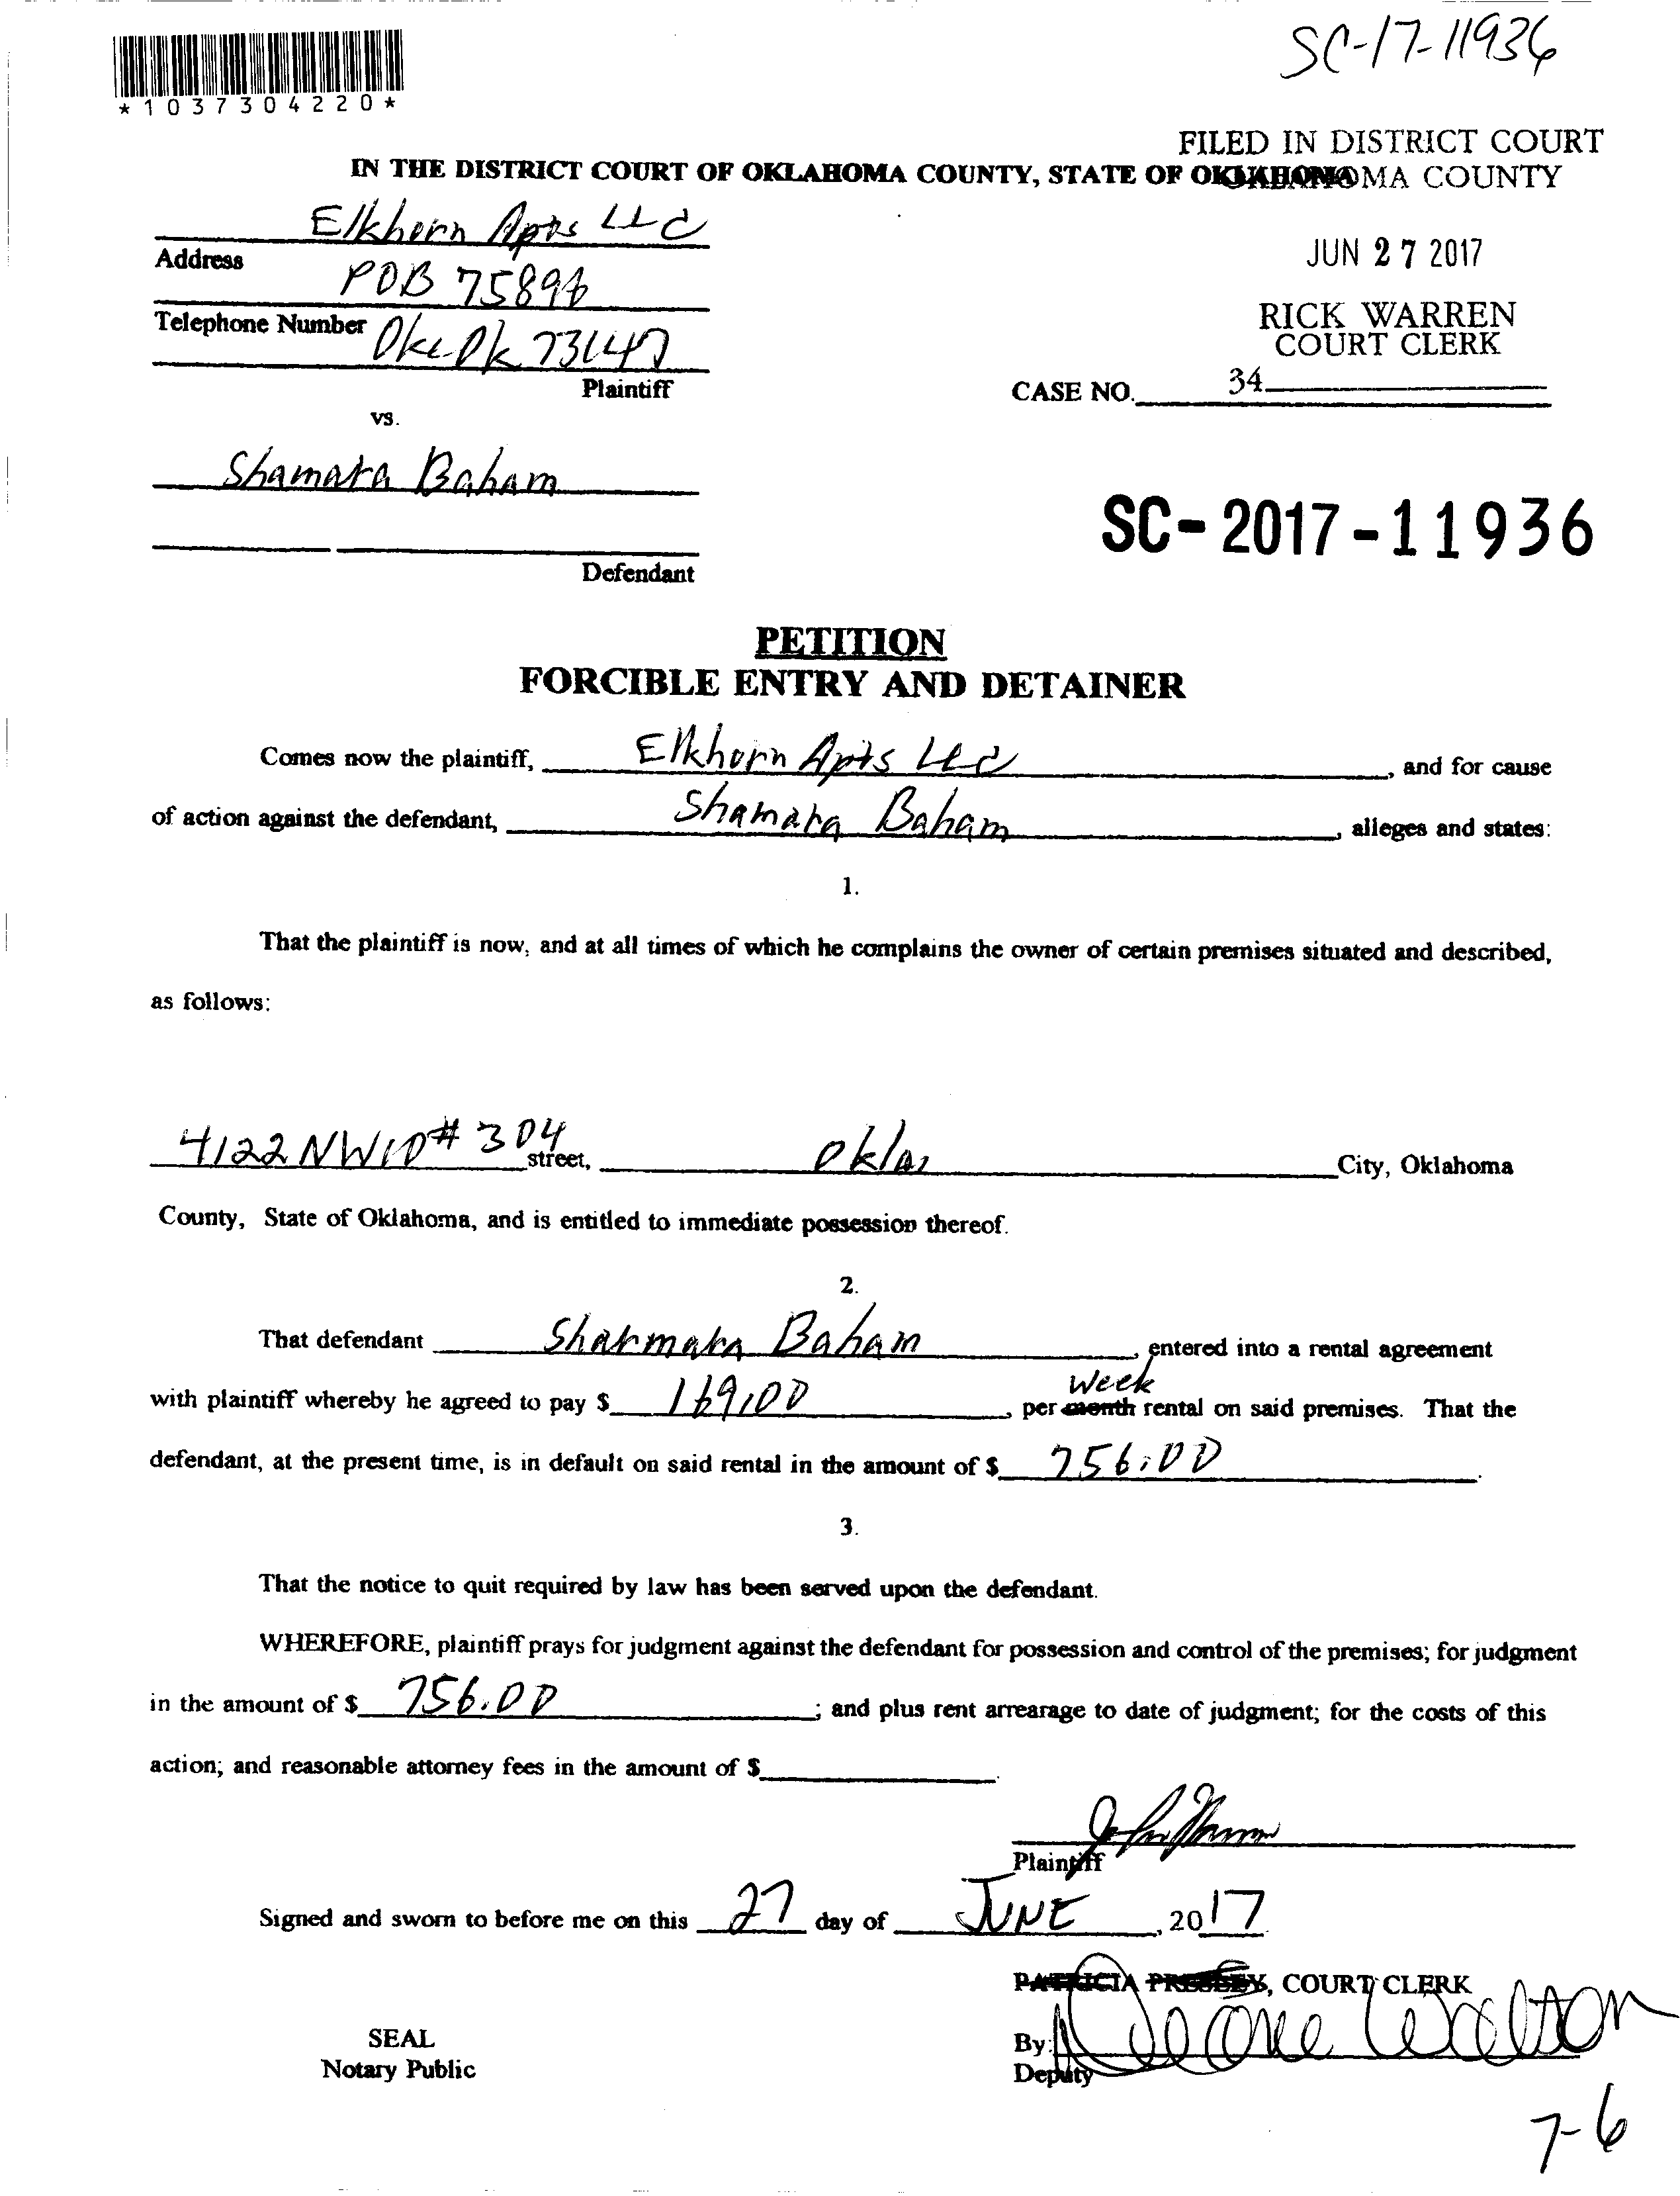 SC-17-11936
*1037304220*
FILED IN DISTRICT COURT
IN THE DISTRICT COURT OF OKLAHOMA COUNTY, STATE OF OKLAHOMA
OKLAHOMA COUNTY
Elkhorn Apts LLC
JUN 27 2017
Address
POB 75896
RICK WARREN
COURT CLERK
Telephone Number
Okc Ok 73147
Plaintiff
CASE NO. 34
vs.
Shamara Baham
SC-2017-11936
Defendant
PETITION
FORCIBLE ENTRY AND DETAINER
Comes now the plaintiff, Elkhorn Apts LLC, and for cause
of action against the defendant, Shamara Baham, alleges and states:
1.
That the plaintiff is now, and at all times of which he complains the owner of certain premises situated and described,
as follows:
4122 NW10 # 304 street, Okla, City, Oklahoma
County, State of Oklahoma, and is entitled to immediate possession thereof.
2.
That defendant Sharmara Baham, entered into a rental agreement
Week
with plaintiff whereby he agreed to pay $ 169.00, per month rental on said premises. That the
defendant, at the present time, is in default on said rental in the amount of $ 756.00.
3.
That the notice to quit required by law has been served upon the defendant.
WHEREFORE, plaintiff prays for judgment against the defendant for possession and control of the premises; for judgment
in the amount of $ 756.00; and plus rent arrearage to date of judgment; for the costs of this
action; and reasonable attorney fees in the amount of $ .
Plaintiff
Signed and sworn to before me on this 27 day of JUNE, 2017
PATRICIA PRESLEY, COURT CLERK
SEAL
By: Walton
Notary Public
Deputy
7-6